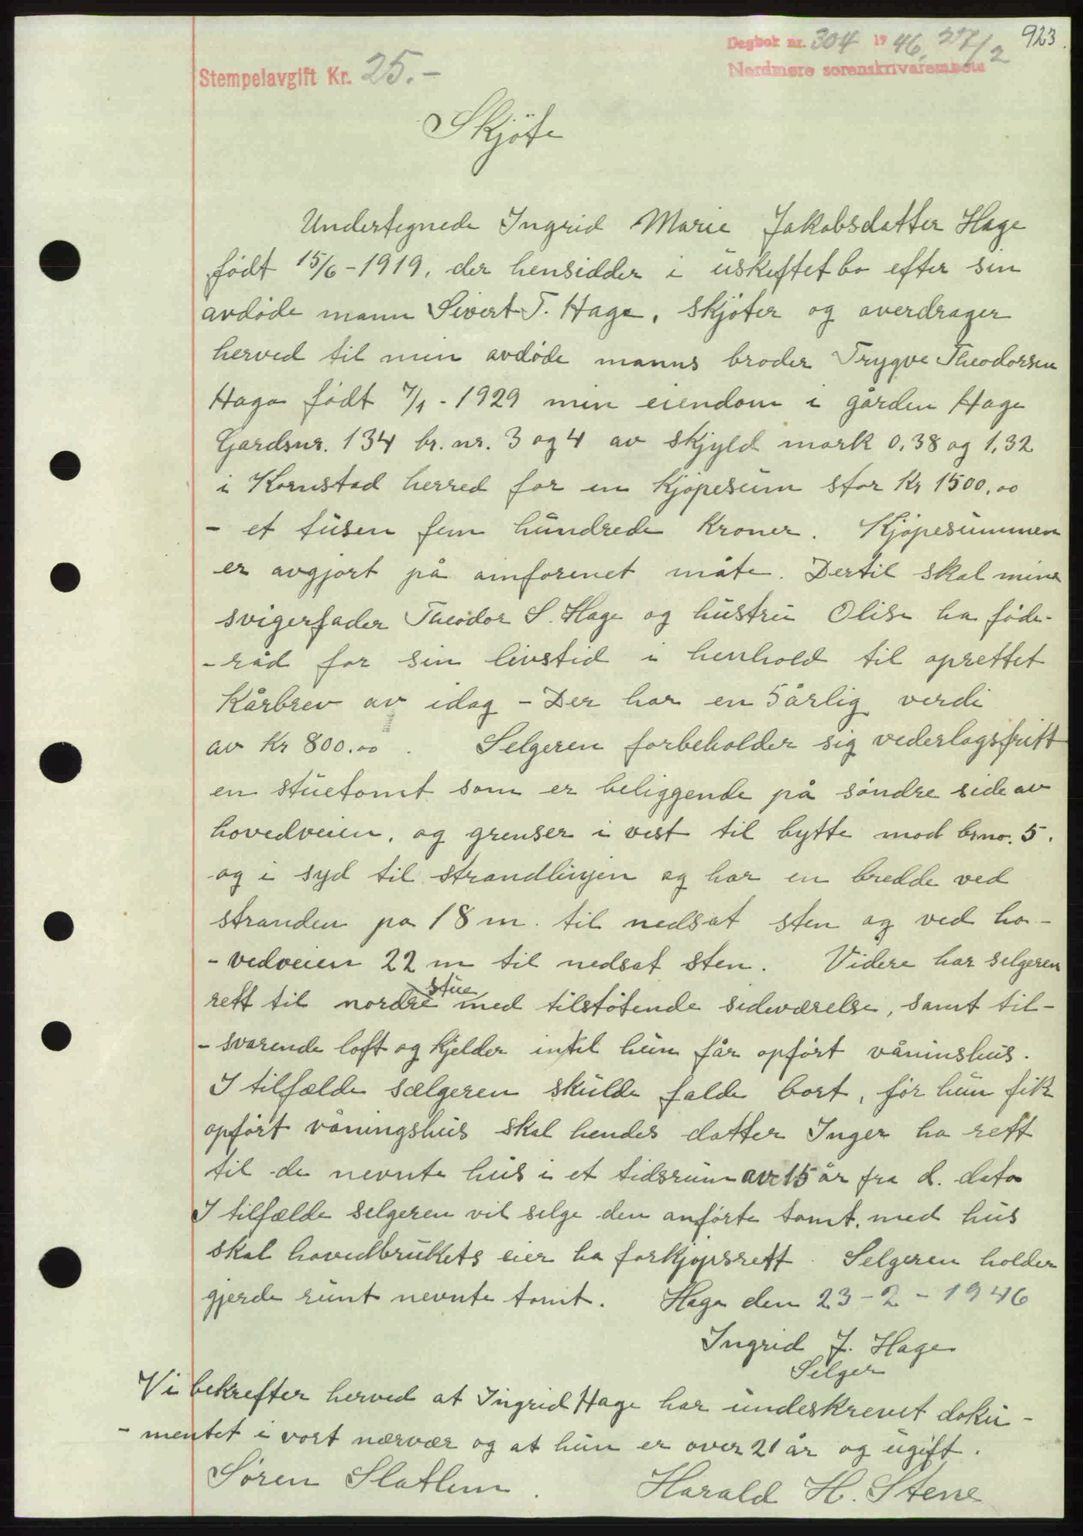 923.
Dagbok nr. 304 1946, 27/2
Nordmøre sorenskrivarembete
Stempelavgift Kr. 25.-
Skjøte
Undertegnede Ingrid Marie Jakobsdatter Hage
født 15/6-1919, der hensidder i uskiftet bo efter sin
avdøde mann Sivert T. Hage, skjøter og overdrager
herved til min avdøde manns broder Trygve Theodorsen
Hage født 7/1 - 1929 min eiendom i gården Hage
Gardsnr. 134 br. nr. 3 og 4 av skjyld mark 0,38 og 1,32
i Kornstad herred for en kjøpesum stor Kr 1500,00
- et tusen fem hundrede kroner. Kjøpesummen
er avgjort på omforenet måte. Dertil skal mine
svigerfader Theodor S. Hage og hustru Olise ha føde-
-råd for sin livstid i henhold til oprettet
Kårbrev av idag - Der har en 5 årlig verdi
av Kr 800.00. Selgeren forbeholder sig vederlagsfritt
en stuetomt som er beliggende på søndre side av
hovedveien, og grenser i vest til bytte mod brno. 5.
og i syd til strandlinjen og har en bredde ved
stranden på 18 m. til nedsat sten og ved ho-
-vedveien 22 m til nedsat sten. Videre har selgeren
rett til nordre stue med tilstøtende sideværelse, samt til-
-svarende loft og kjelder intil hun får opført våninshus.
I tilfælde sælgeren skulde falde bort, før hun fik
opført våningshus skal hendes datter Inger ha rett
til de nevnte hus i et tidsrum av 15 år fra d. dato
I tilfælde selgeren vil selge den anførte tomt, med hus
skal hovedbrukets eier ha forkjøpsrett. Selgeren holder
gjerde runt nevnte tomt. Hage den 23-2-1946
Ingrid J. Hage
Selger
Vi bekrefter herved at Ingrid Hage har undeskrevet doku-
-mentet i vort nærvær og at hun er over 21 år og ugift.
Søren Slatlem. Harald H. Stene